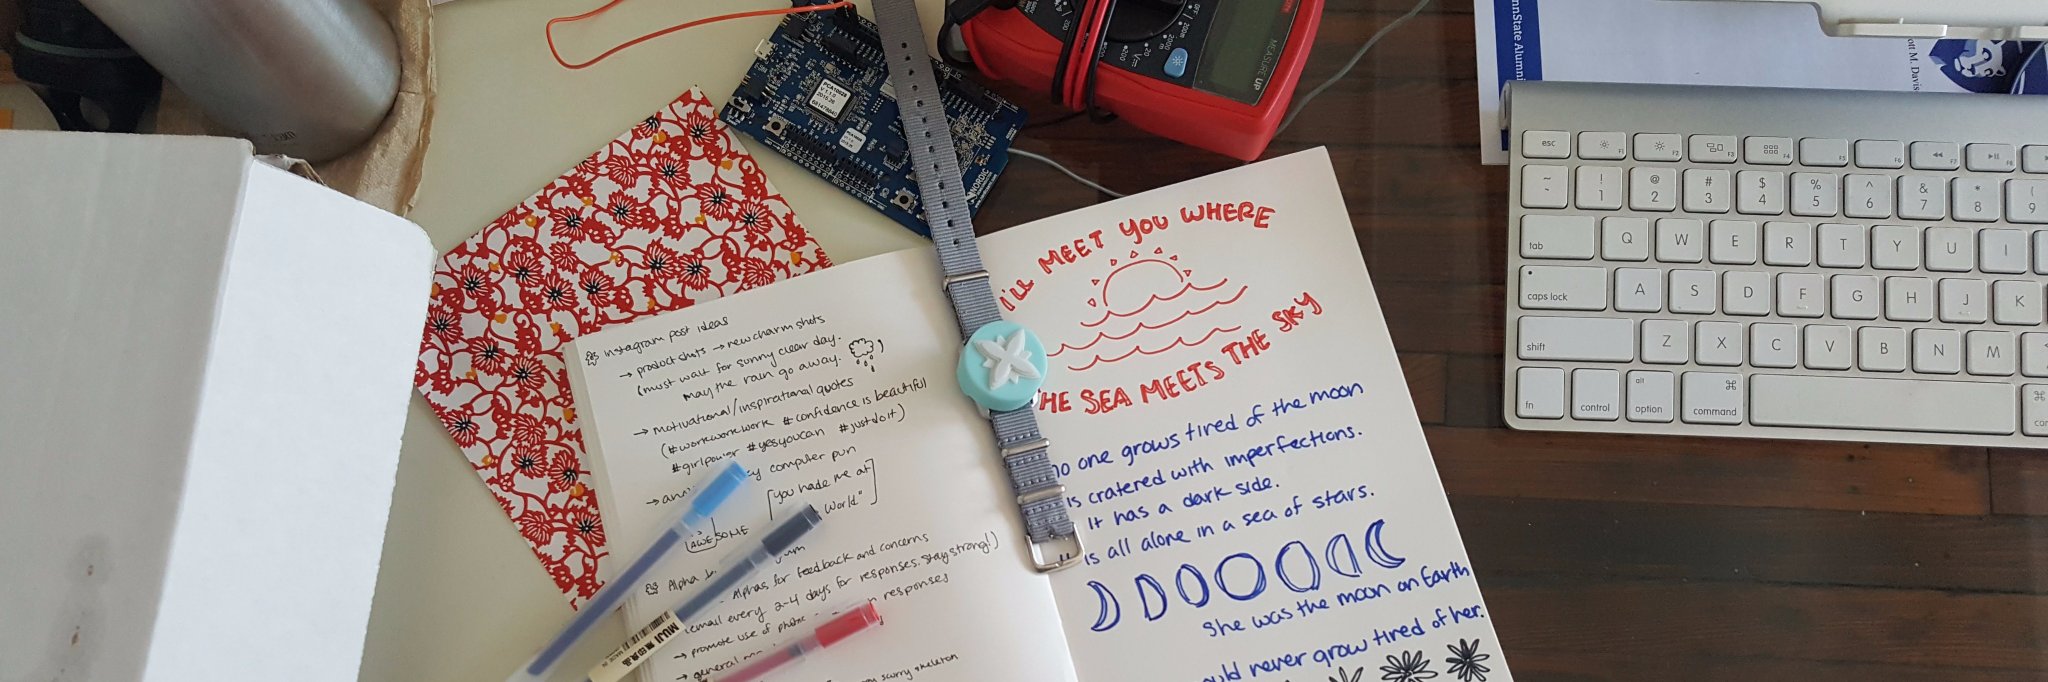 instagram post ideas
→ product shots → new charm shots
(must wait for sunny clear day.
may the rain go away.
→ motivational/inspirational quotes
(#workworkwork #confidence is beautiful
#girlpower #yesyoucan #justdoit)
computer pun
[you hade me at
World"]
AWESOME
Alpha
Alphas for feedback and concerns
email every 2-4 days for responses. Stay strong!)
→ promote use of
responses
→ general
scurry skeleton
MUJI 無印良品
I'll MEET YOU WHERE
THE SEA MEETS THE SKY
no one grows tired of the moon
is cratered with imperfections.
it has a dark side.
is all alone in a sea of stars.
She was the moon on Earth
never grow tired of her.
PCA10028
V 1.1.0
2015.26
681478840
NORDIC
MEASURE UP
OFF
200m
2000m
20
200
V
nnState Alumni
ott M. Davis
esc F1 F2 F3 F4 F5 F6 F7 F8
~ ` ! 1 @ 2 # 3 $ 4 % 5 ^ 6 & 7 * 8 ( 9
tab Q W E R T Y U I
caps lock A S D F G H J K
shift Z X C V B N M
fn control alt option ⌘ command ⌘